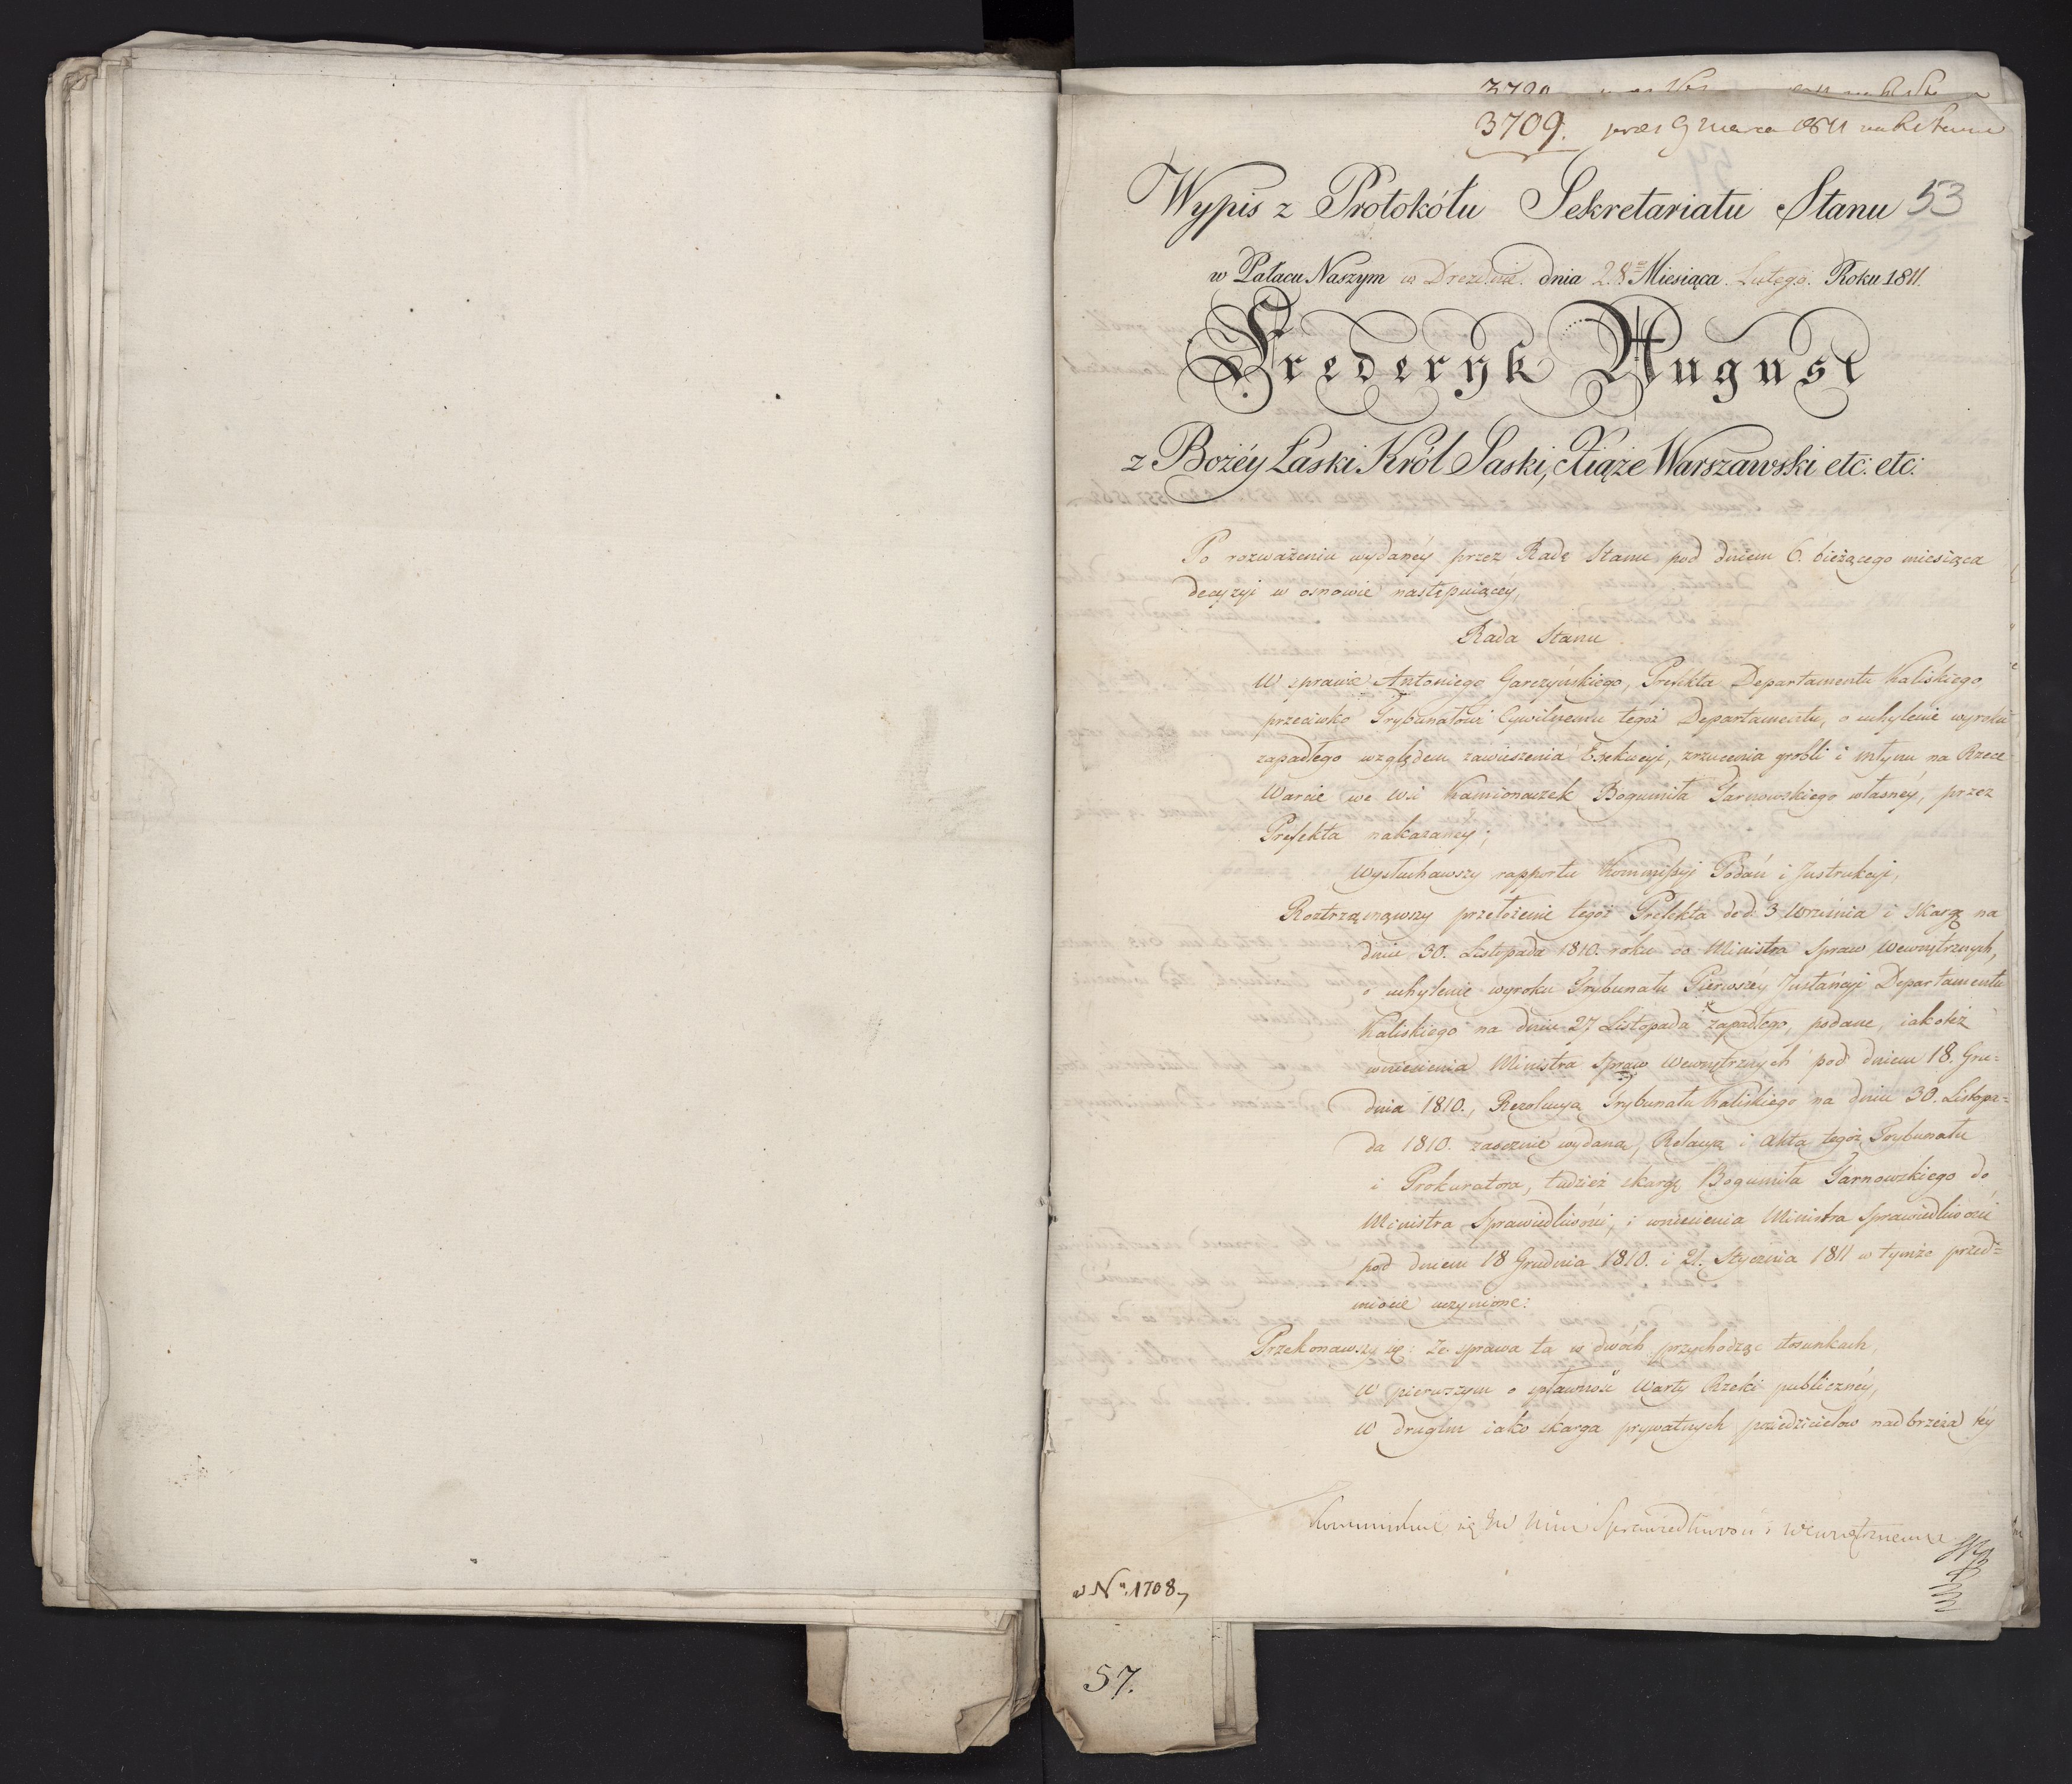 3709. pres 9 Marca 1811
Wypis z Protokółu Sekretariatu Stanu 53
w Pałacu Naszym w Dreznie. dnia 28 Miesiąca Lutego. Roku 1811.
Fryderyk August
z Bożéy Łaski Król Saski, Xiąże Warszawski etc: etc:
Po rozważeniu wydanéy przez Radę Stanu pod dniem 6. bieżącego miesiąca
decyzyi w osnowie następuiącéy,
Rada Stanu
W sprawie Antoniego Garczyńskiego, Prefekta Departamentu Kaliskiego,
przeciwko Trybunałowi Cywilnemu tegoż Departamentu, o uchylenie wyroku
zapadłego względem zawieszenia Exekucyi, zrzucenia grobli i młynu na Rzece
Warcie we Wsi Kamionaczek Bogumiła Tarnowskiego własnéy, przez
Prefekta nakazanéy;
Wysłuchawszy rapportu Kommissyi Podań i Instrukcyi,
Roztrząsnąwszy przełożenie tegoż Prefekta de d. 3 Września i skargę na
dniu 30. Listopada 1810. roku do Ministra Spraw Wewnętrznych,
o uchylenie wyroku Trybunału Pierwszéy Instancyi Departamentu
Kaliskiego na dniu 27 Listopada zapadłego, podane, iakoteż
wniesienia Ministra Spraw Wewnętrznych pod dniem 18. Gru=
dnia 1810., Rezolucyą Trybunału Kaliskiego na dniu 30. Listopa=
da 1810. zaocznie wydaną, Relacyą i Akta tegoż Trybunału
i Prokuratora, tudzież skargę Bogumiła Tarnowskiego do
Ministra Sprawiedliwości, i wniesienia Ministra Sprawiedliwości
pod dniem 18 Grudnia 1810. i 21. Stycznia 1811 w tymże przed=
miocie uczynione:
Przekonawszy się: Że sprawa ta w dwóch przychodząc stosunkach,
W pierwszym o spławność Warty Rzeki publicznéy,
W drugim iako skarga prywatnych dziedziców nadbrzeża téy
się Min Sprawiedliwości i Wewnętrznemu
N° 1708
57.